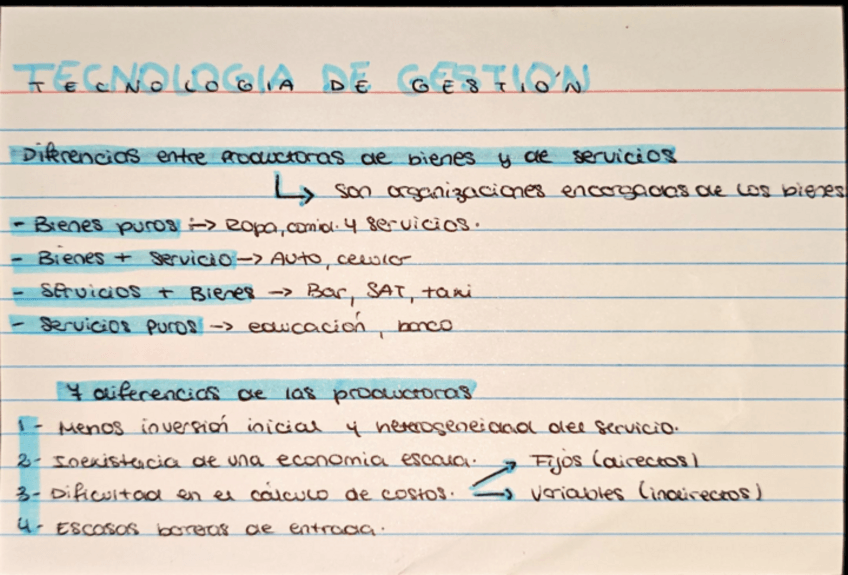 TECNOLOGIA DE GESTIÓN
Diferencias entre productoras de bienes y de servicios
↳ son organizaciones encargadas de los bienes
- Bienes puros → Ropa, comida y servicios.
- Bienes + servicio → Auto, celular
- Servicios + Bienes → Bar, SAT, taxi
- Servicios puros → educación, banco
7 diferencias de las productoras
1- Menos inversión inicial y heterogeneidad del servicio.
2- Inexistecia de una economia escala. Fijos (directos)
3- Dificultad en el cálculo de costos. → Variables (indirectos)
4- Escasas barreras de entrada.